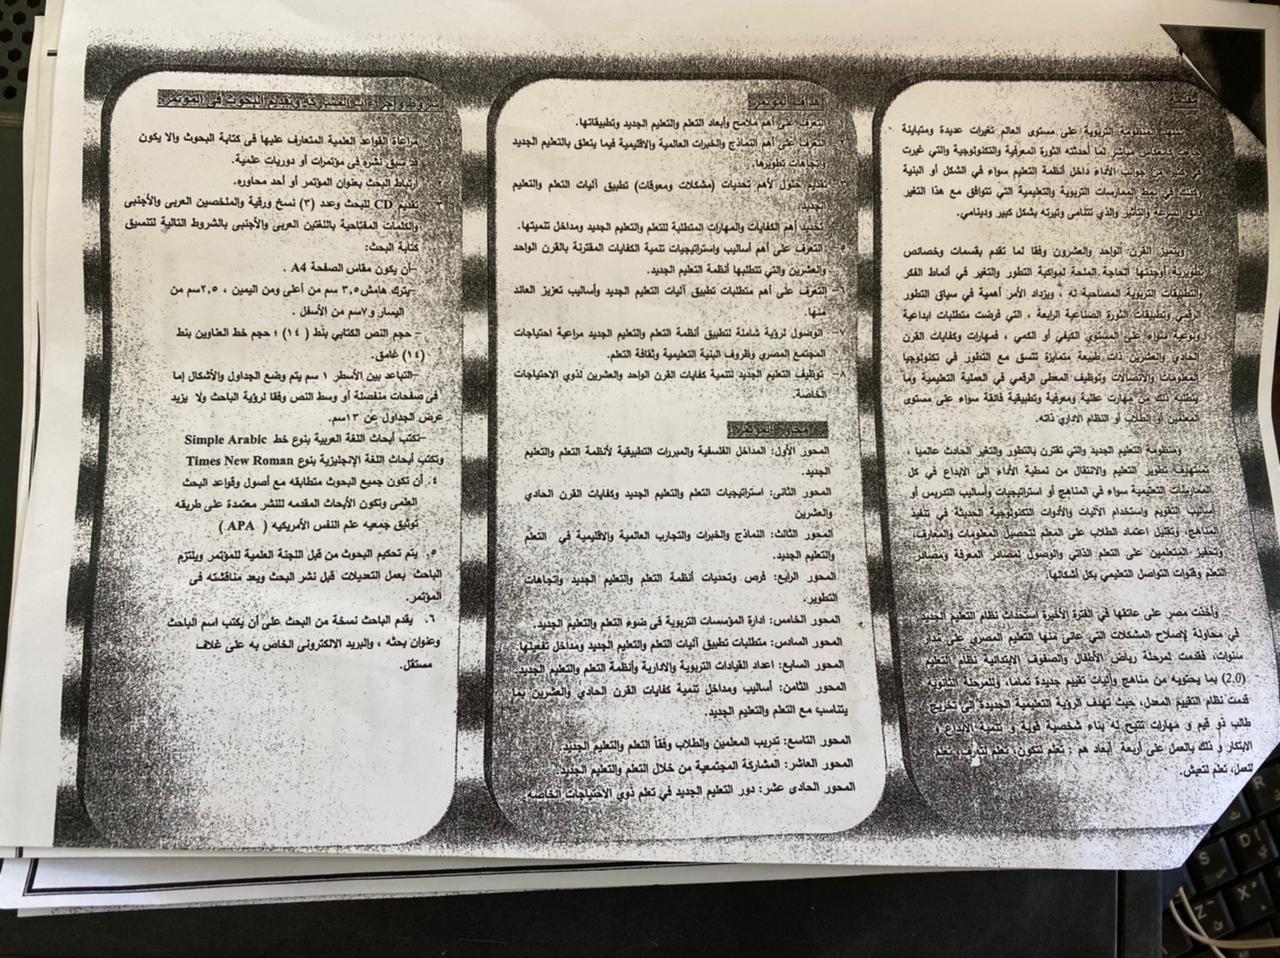 مقدمة
تشهد المنظومة التربوية على مستوى العالم تغيرات عديدة ومتباينة
جاءت كانعكاس مباشر لما أحدثته الثورة المعرفية والتكنولوجية والتي غيرت
في كثير من جوانب الأداء داخل أنظمة التعليم سواء في الشكل أو البنية
وكذلك في نمط الممارسات التربوية والتعليمية التي تتوافق مع هذا التغير
فائق السرعة والتأثير والذي تتنامى وتيرته بشكل كبير وديناميي.
ويتميز القرن الواحد والعشرون وفقا لما تقدم بقسمات وخصائص
تطويرية أوجدتها الحاجة الملحة لمواكبة التطور والتغير في أنماط الفكر
والتطبيقات التربوية المصاحبة له ، ويزداد الأمر أهمية في سياق التطور
الرقمي وتطبيقات الثورة الصناعية الرابعة ، التي فرضت متطلبات ابداعية
ونوعية سواء على المستوي الكيفي أو الكمي ، فمهارات وكفايات القرن
الحادي والعشرين ذات طبيعة متمايزة تتسق مع التطور في تكنولوجيا
المعلومات والاتصالات وتوظيف المعطى الرقمي في العملية التعليمية وما
يتطلبه ذلك من مهارات عقلية ومعرفية وتطبيقية فائقة سواء على مستوى
المعلمين أو الطلاب أو النظام الاداري ذاته.
ومنظومة التعليم الجديد والتي تقترن بالتطور والتغير الحادث عالميا ،
تستهدف تطوير التعليم والانتقال من نمطية الأداء الى الابداع في كل
الممارسات التعليمية سواء في المناهج أو استراتيجيات وأساليب التدريس أو
أساليب التقويم واستخدام الآليات والأدوات التكنولوجية الحديثة في تنفيذ
المناهج، وتقليل اعتماد الطلاب على المعلم لتحصيل المعلومات والمعارف،
وتحفيز المتعلمين على التعلم الذاتي والوصول لمصادر المعرفة ومصادر
التعلم وقنوات التواصل التعليمي بكل أشكالها.
وأخذت مصر على عاتقها في الفترة الأخيرة استحداث نظام التعليم الجديد
في محاولة لإصلاح المشكلات التي عانى منها التعليم المصري على مدار
سنوات، فقدمت لمرحلة رياض الأطفال والصفوف الابتدائية نظام التعليم
(2,0) بما يحتويه من مناهج وآليات تقييم جديدة تماما، وللمرحلة الثانوية
قدمت نظام التقييم المعدل، حيث تهدف الرؤية التعليمية الجديدة الى تخريج
طالب ذو قيم و مهارات تتيح له بناء شخصية قوية و تنمية الابداع و
الابتكار و ذلك بالعمل على أربعة أبعاد هم : تعلم لتكون، تعلم لتعرف، تعلم
لتعمل، تعلم لتعيش.
أهداف المؤتمر
التعرف على أهم ملامح وأبعاد التعلم والتعليم الجديد وتطبيقاتها.
التعرف على أهم النماذج والخبرات العالمية والاقليمية فيما يتعلق بالتعليم الجديد
واتجاهات تطويرها.
٣- تقديم حلول لأهم تحديات (مشكلات ومعوقات) تطبيق آليات التعلم والتعليم
الجديد
تحديد أهم الكفايات والمهارات المتطلبة للتعلم والتعليم الجديد ومداخل تنميتها.
٥- التعرف على أهم أساليب واستراتيجيات تنمية الكفايات المقترنة بالقرن الواحد
والعشرين والتي تتطلبها أنظمة التعليم الجديد.
٦- التعرف على أهم متطلبات تطبيق آليات التعليم الجديد وأساليب تعزيز العائد
منها.
٧- الوصول لرؤية شاملة لتطبيق أنظمة التعلم والتعليم الجديد مراعية احتياجات
المجتمع المصري وظروف البنية التعليمية وثقافة التعلم.
٨- توظيف التعليم الجديد لتنمية كفايات القرن الواحد والعشرين لذوي الاحتياجات
الخاصة.
محاور المؤتمر
المحور الأول: المداخل الفلسفية والمبررات التطبيقية لأنظمة التعلم والتعليم
الجديد.
المحور الثانى: استراتيجيات التعلم والتعليم الجديد وكفايات القرن الحادي
والعشرين
المحور الثالث: النماذج والخبرات والتجارب العالمية والاقليمية في التعلم
والتعليم الجديد.
المحور الرابع: فرص وتحديات أنظمة التعلم والتعليم الجديد واتجاهات
التطوير.
المحور الخامس: ادارة المؤسسات التربوية فى ضوء التعلم والتعليم الجديد.
المحور السادس: متطلبات تطبيق آليات التعلم والتعليم الجديد ومداخل تفعيلها.
المحور السابع: اعداد القيادات التربوية والادارية وأنظمة التعلم والتعليم الجديد.
المحور الثامن: أساليب ومداخل تنمية كفايات القرن الحادي والعشرين بما
يتناسب مع التعلم والتعليم الجديد.
المحور التاسع: تدريب المعلمين والطلاب وفقاً التعلم والتعليم الجديد
المحور العاشر: المشاركة المجتمعية من خلال التعلم والتعليم الجديد.
المحور الحادى عشر: دور التعليم الجديد في تعلم ذوي الاحتياجات الخاصة
شروط وإجراءات المشاركة وتقديم البحوث فى المؤتمر
مراعاة القواعد العلمية المتعارف عليها فى كتابة البحوث والا يكون
قد سبق نشره فى مؤتمرات أو دوريات علمية.
ارتباط البحث بعنوان المؤتمر أو أحد محاوره.
٣. تقديم CD للبحث وعدد (٣) نسخ ورقية والملخصين العربى والأجنبى
والكلمات المفتاحية باللغتين العربى والأجنبى بالشروط التالية لتنسيق
كتابة البحث:
-أن يكون مقاس الصفحة A4 .
-يترك هامش٣,٥ سم من أعلى ومن اليمين ، ٢,٥سم من
اليسار و٧سم من الأسفل .
- حجم النص الكتابي بنط ( ١٤) ؛ حجم خط العناوين بنط
(١٤) غامق.
-التباعد بين الأسطر ١ سم يتم وضع الجداول والأشكال إما
فى صفحات منفصلة أو وسط النص وفقا لرؤية الباحث ولا يزيد
عرض الجداول عن ١٣سم.
-تكتب أبحاث اللغة العربية بنوع خط Simple Arabic
وتكتب أبحاث اللغة الإنجليزية بنوع Times New Roman
٤. أن تكون جميع البحوث متطابقه مع أصول وقواعد البحث
العلمى وتكون الأبحاث المقدمه للنشر معتمدة على طريقه
توثيق جمعيه علم النفس الأمريكيه ( APA )
٥. يتم تحكيم البحوث من قبل اللجنة العلمية للمؤتمر ويلتزم
الباحث بعمل التعديلات قبل نشر البحث وبعد مناقشته فى
المؤتمر.
٦. يقدم الباحث نسخة من البحث على أن يكتب اسم الباحث
وعنوان بحثه ، والبريد الالكترونى الخاص به على غلاف
مستقل.